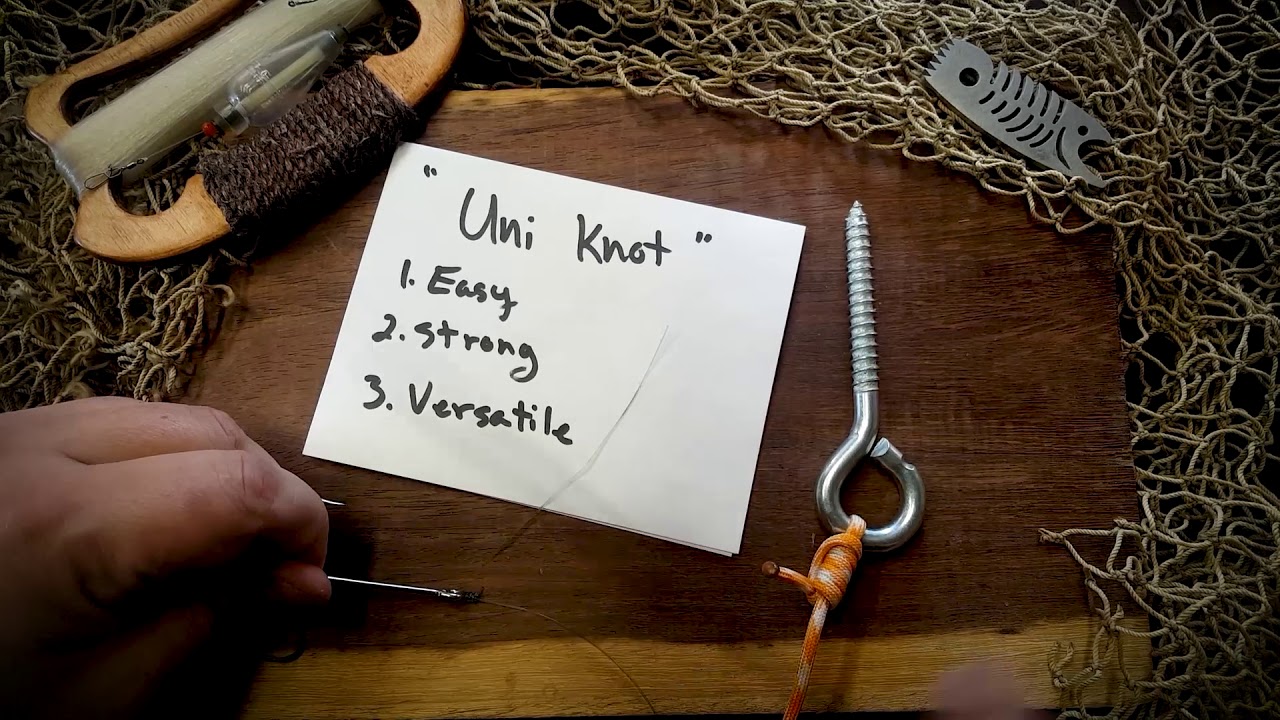 "Uni Knot"
1. Easy
2. Strong
3. Versatile